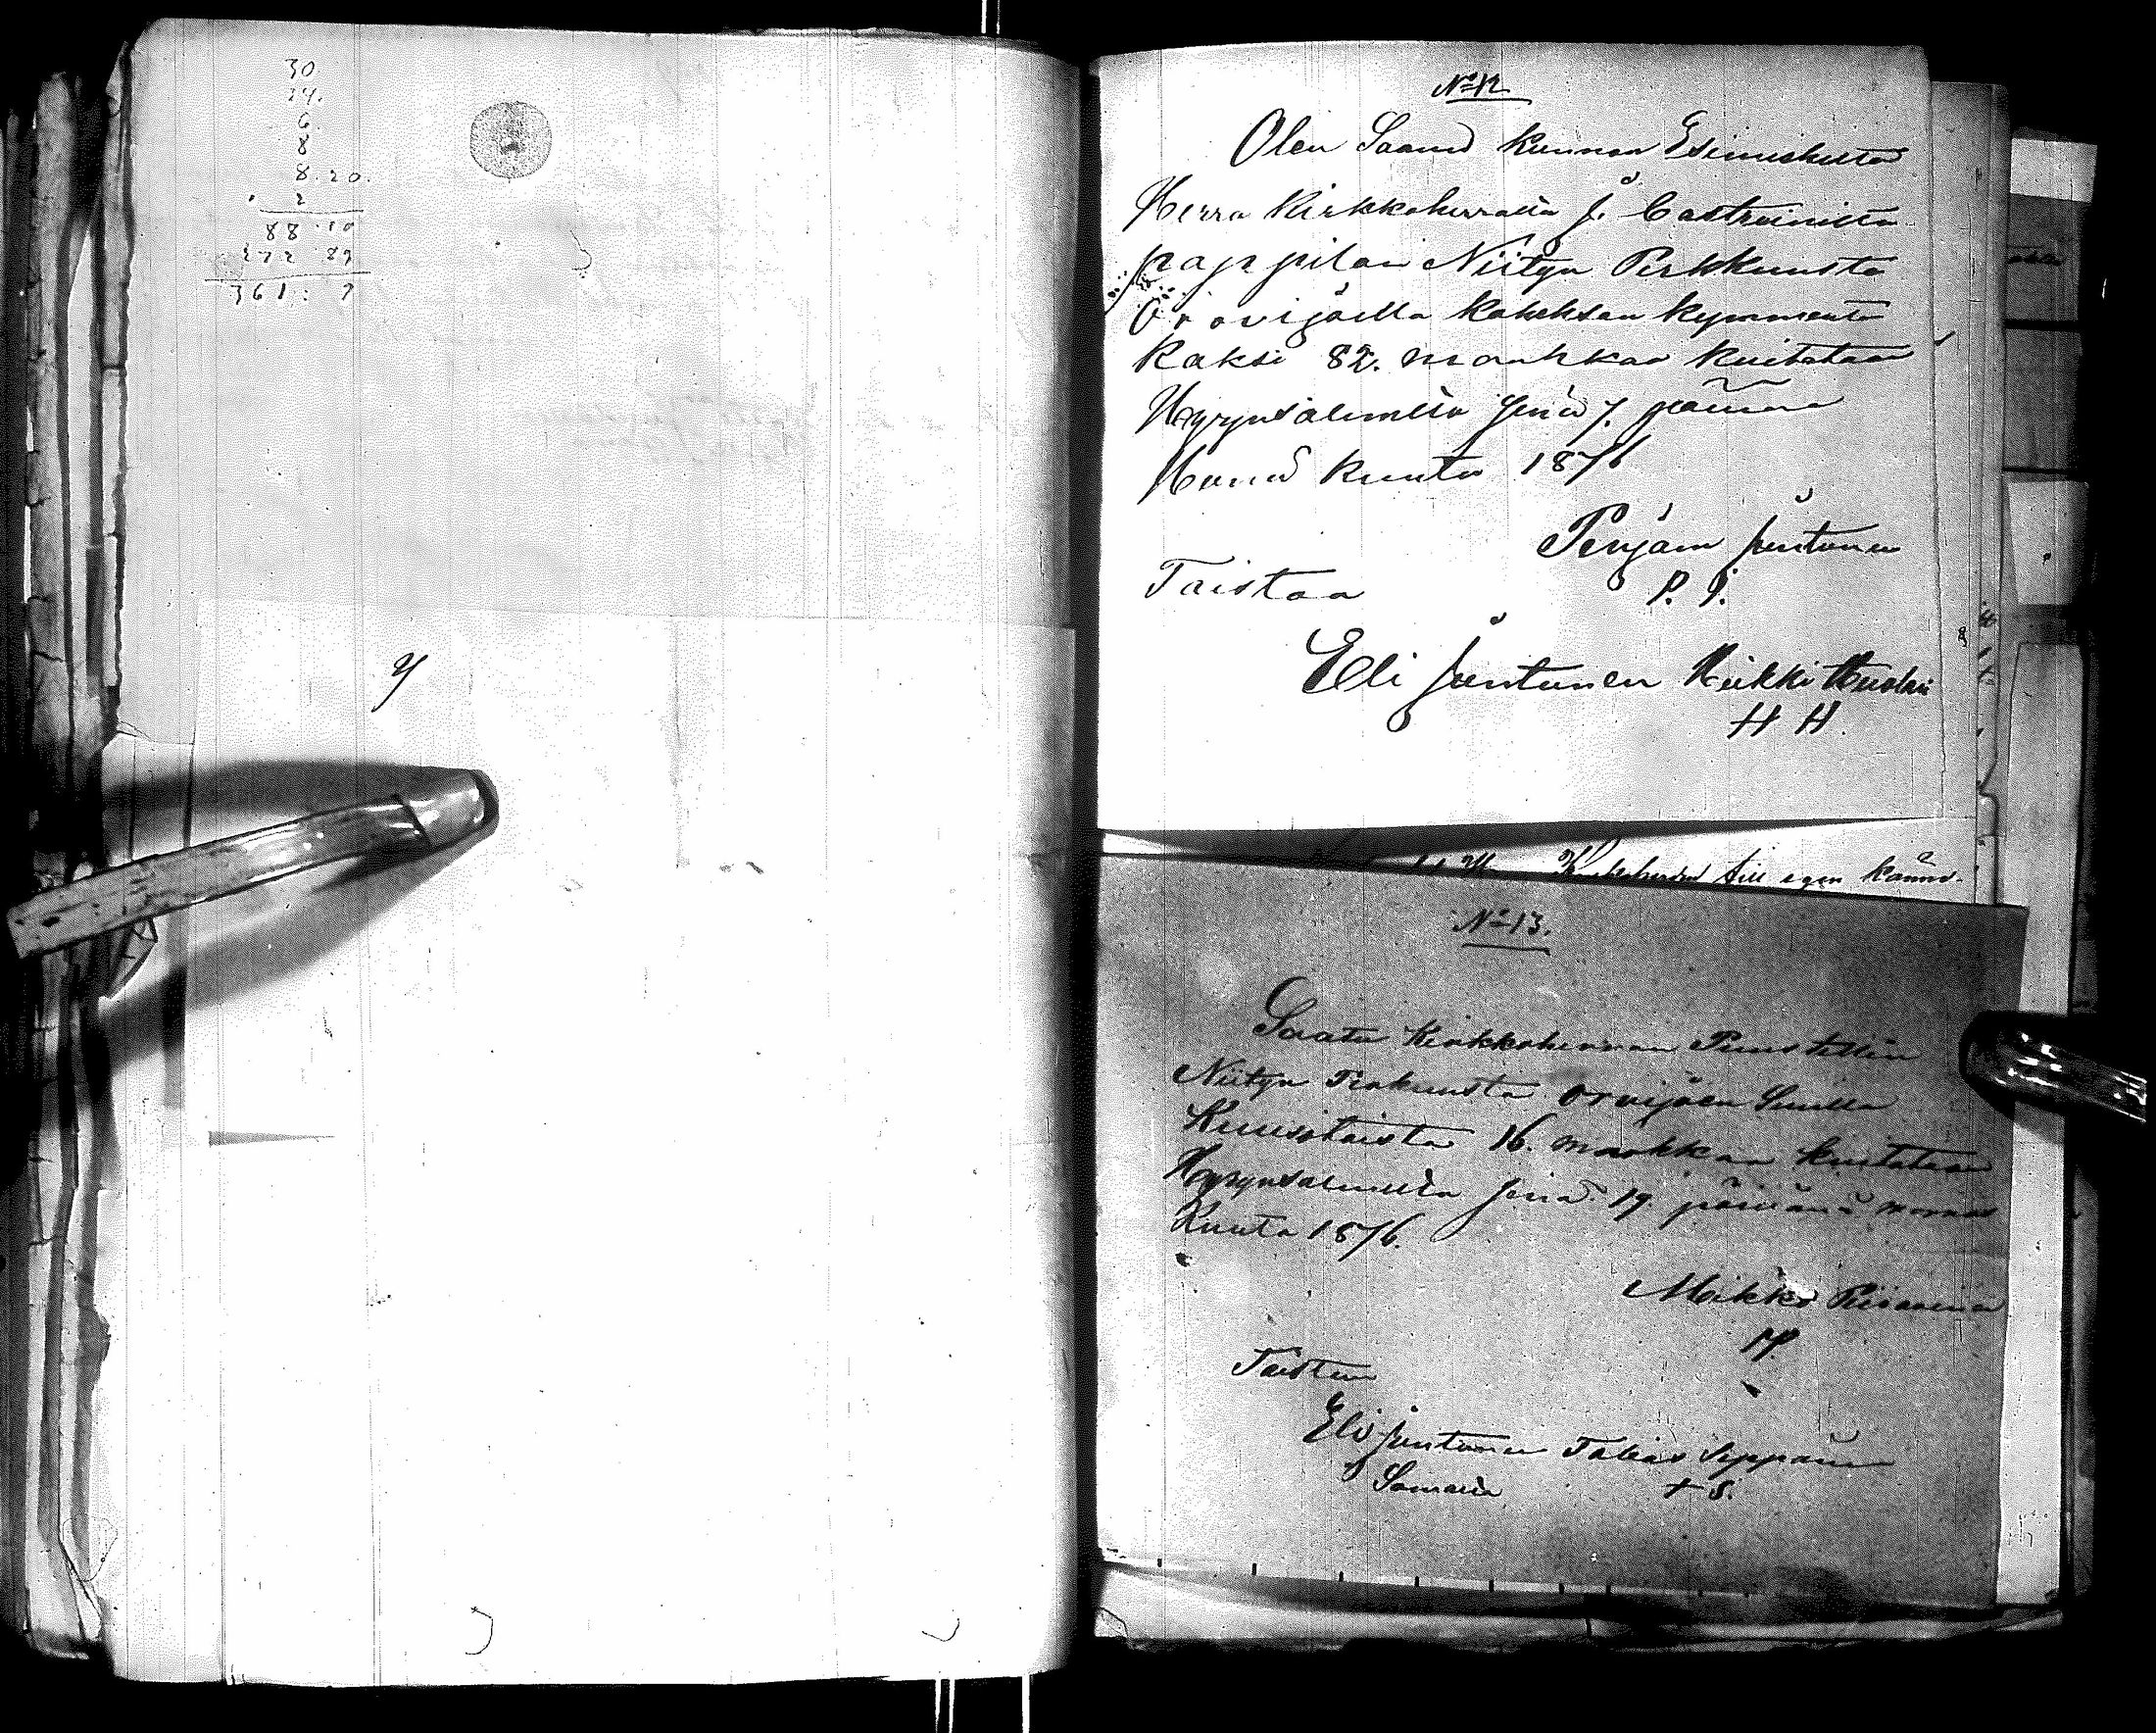 30
24.
6.
8
8.20.
2
88.10
272 89
361: 7
No 12
Olen Saanu kunnan Esimieheltä
Herra Kirkkoherralta J. Castreinilta
pappilan Niityn Perkkuusta
Orovijoella kaheksan kymmentä
kaksi 82. markkaa kuitataan
Hyrynsalmella sinä 7. päivänä
kuuta 1876
Penjam Juntunen
P. J.
Taistaa
Eli Juntunen Heikki
H H.
till egen
No 13.
Saatu Kirkkoherran Puustellin
Niityn Perkuusta Orvijoen Suulla
Kuusitoista 16. markkaa kuitataan
Hyrynsalmella sinä 19. päivänä
Kuuta 1876.
Mikko
Taistaa
Eli Juntunen Tobias Seppänen
T S.